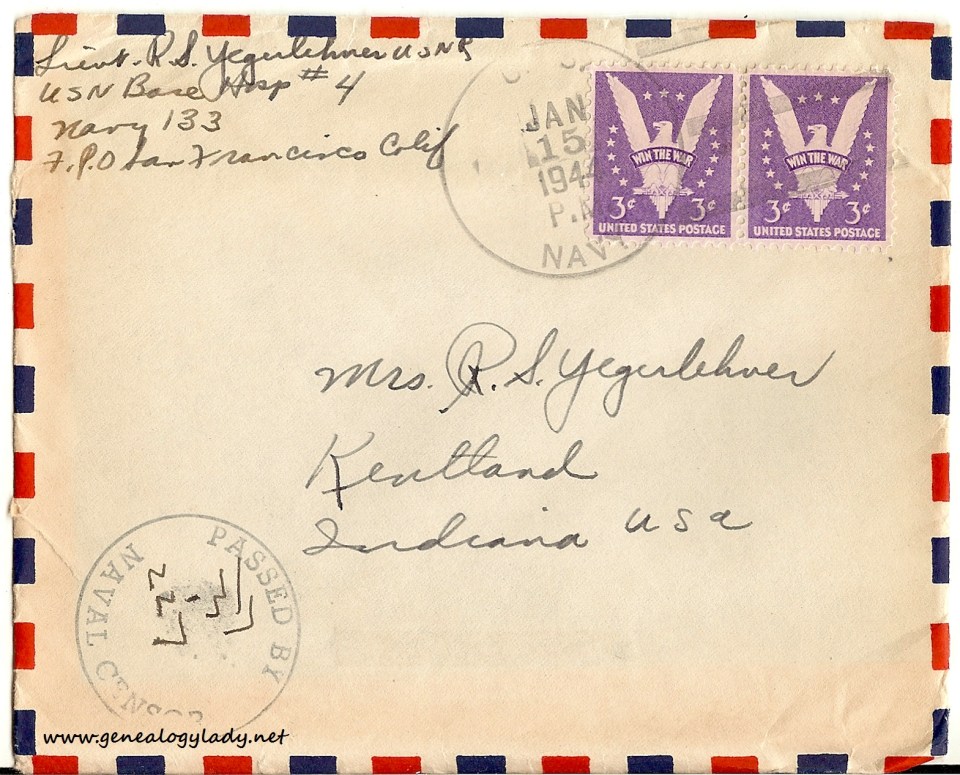 Lieut. R S Yegerlehner USNR
USN Base Hosp #4
Navy 133
F.P.O San Francisco Calif
JAN
15
1944
P.M
NAVY
WIN THE WAR
3¢ 3¢
UNITED STATES POSTAGE
WIN THE WAR
3¢ 3¢
UNITED STATES POSTAGE
Mrs. R. S. Yegerlehner
Kentland
Indiana USA
PASSED BY
NAVAL CENSOR
www.genealogylady.net